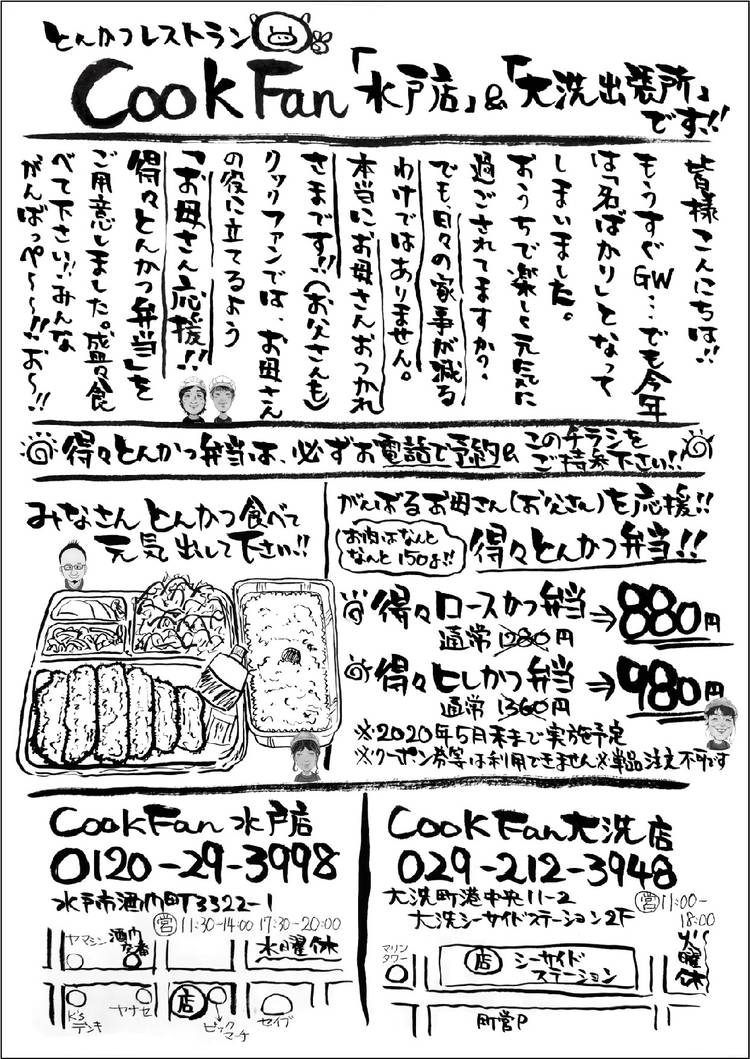 とんかつレストラン
Cook Fan「水戸店」&「大洗出張所」
です!!
皆様こんにちは!!
もうすぐGW…でも今年
は「名ばかり」となって
しまいました。
おうちで楽しく元気に
過ごされてますか?
でも、日々の家事が減る
わけではありません。
本当にお母さんおつかれ
さまです!!(お父さんも)
クックファンでは、お母さん
の役に立てるよう
「お母さん応援!!
得々とんかつ弁当」を
ご用意しました。盛々食
べて下さい!!みんな
がんばっぺ〜〜!!お〜!!
得々とんかつ弁当は、必ずお電話で予約&
このチラシを
ご持参下さい!!
みなさんとんかつ食べて
元気出して下さい!!
がんばるお母さん(お父さん)を応援!!
お肉はなんと
なんと150g!!
得々とんかつ弁当!!
得々ロースかつ弁当⇒880円
通常1280円
得々ヒレかつ弁当⇒980円
通常1360円
※2020年5月末まで実施予定
※クーポン券等は利用できません※単品注文不可です
Cook Fan 水戸店
0120-29-3998
水戸市酒門町3322-1
営11:30-14:00 17:30-20:00
水曜休
ヤマシン
酒門
交番
K's
デンキ
ヤナセ
店
ビック
マーチ
セイブ
Cook Fan 大洗店
029-212-3948
大洗町港中央11-2
大洗シーサイドステーション2F
営11:00-
18:00
火曜休
マリン
タワー
店
シーサイド
ステーション
町営P